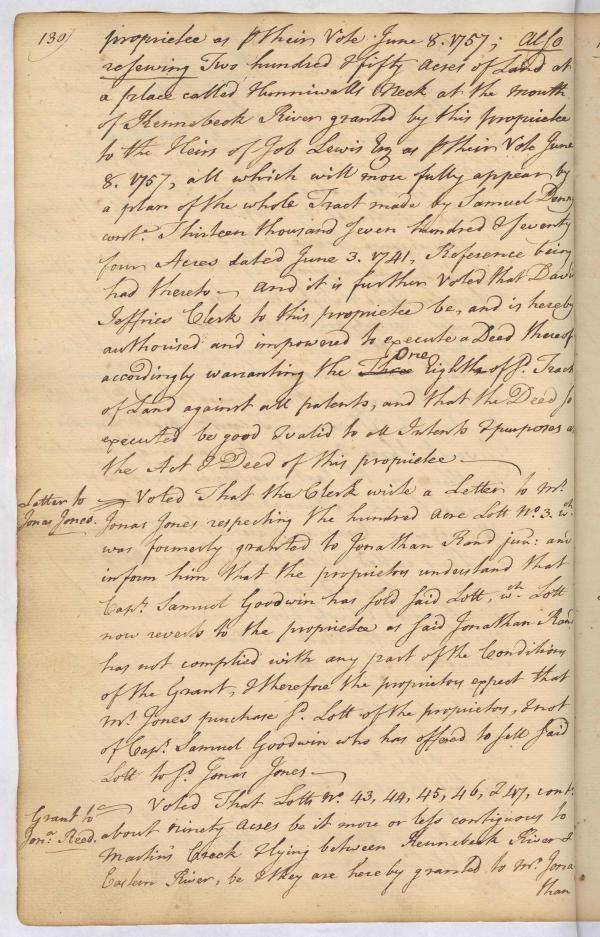 130)
proprietee as pr their Vote June 8. 1757; Also
reserving Two hundred & fifty Acres of Land at
a place called Hunniwells Neck at the mouth
of Kennebeck River granted by this proprietee
to the Heirs of Job Lewis Esq as pr their Vote June
8. 1757, all which will more fully appear by
a plan of the whole Tract made by Samuel Denny
conta. Thirteen thousand seven hundred & seventy
four Acres dated June 3. 1741, Reference being
had thereto — And it is further Voted that David
Jeffries Clerk to this proprietee be, and is hereby
authorised and impowered to execute a Deed thereof
One
accordingly warranting the Three Eighths of sd. Tract
of Land against all patents, and that the Deed so
executed be good & valid to all Intents & purposes as
the Act & Deed of this proprietee —
Letter to
Jonas Jones.
Voted That the Clerk write a Letter to Mr.
Jonas Jones respecting the hundred acre Lott No. 3. wch.
was formerly granted to Jonathan Rand junr: and
inform him that the proprietors understand that
Capt. Samuel Goodwin has sold said Lott, wch. Lott
now reverts to the proprietee as said Jonathan Rand
has not complied with any part of the Conditions
of the Grant, & therefore the proprietors expect that
Mr. Jones purchase sd. Lott of the proprietors, & not
of Capt. Samuel Goodwin who has offered to sell said
Lott to sd. Jonas Jones —
Grant to
Jona. Reed.
Voted That Lotts No. 43, 44, 45, 46, & 47, conta.
about ninety Acres be it more or less contiguous to
Martin's Creek & lying between Kennebeck River &
Eastern River, be & they are hereby granted to Mr. Jona
than